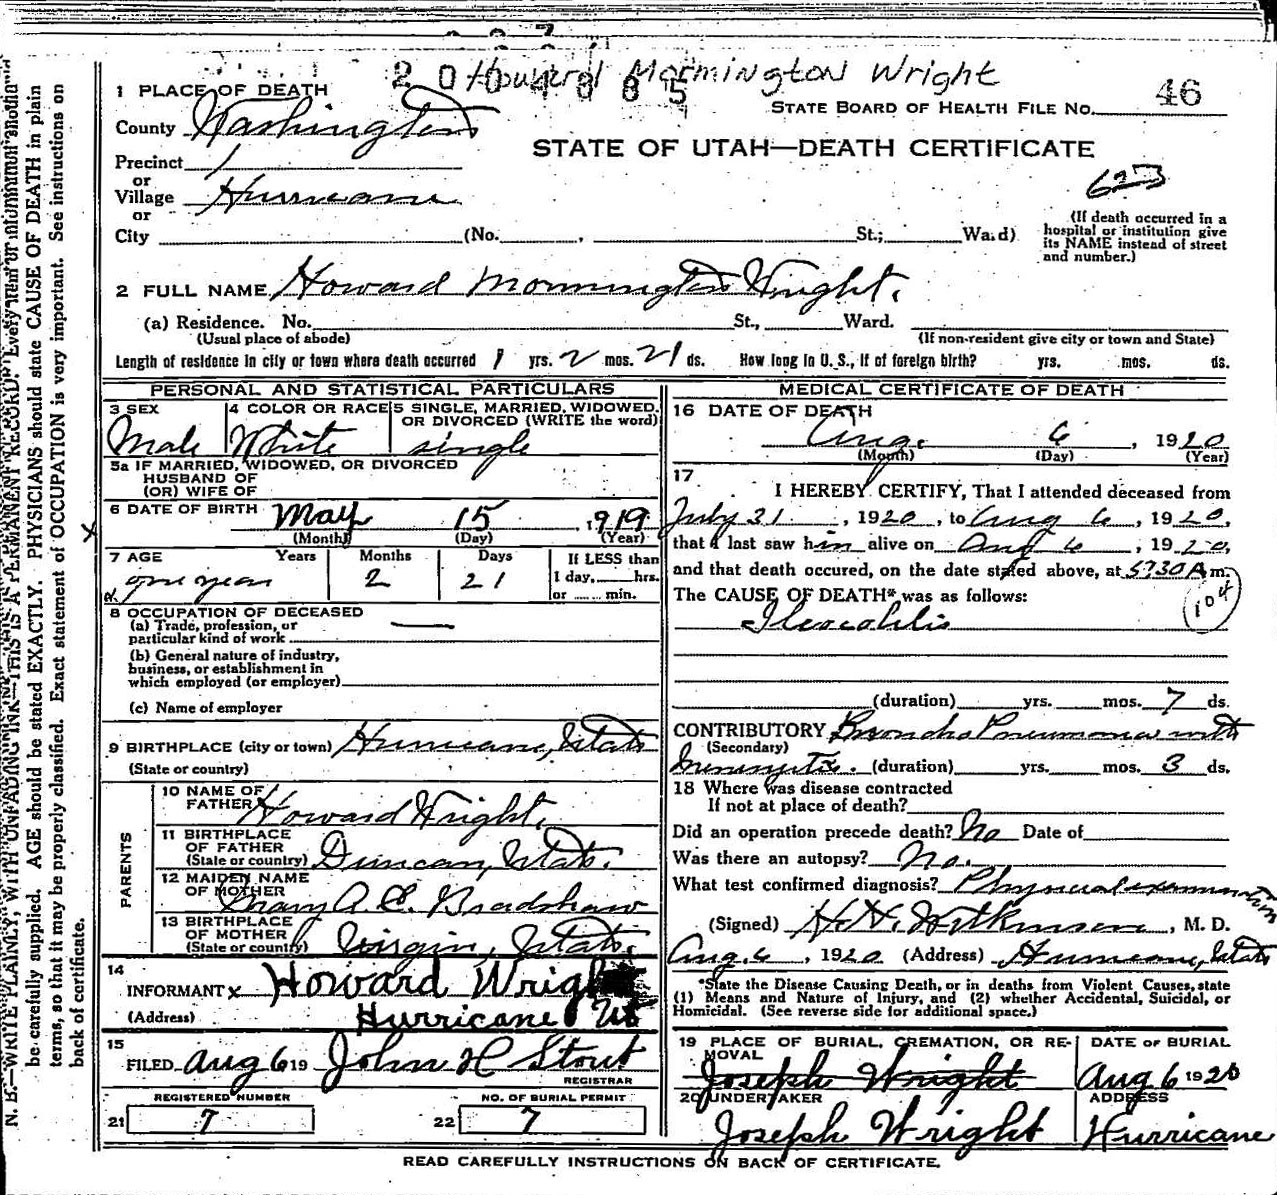 Howard Mormington Wright
2 0 0 4 8 6 5
1 PLACE OF DEATH
STATE BOARD OF HEALTH FILE NO. 46
County Washington
STATE OF UTAH—DEATH CERTIFICATE
Precinct 1
or
623
Village Hurricane
or
City (No. , St.; Ward)
(If death occurred in a
hospital or institution give
its NAME instead of street
and number.)
2 FULL NAME Howard Mormington Wright.
(a) Residence. No. St., Ward.
(Usual place of abode) (If non-resident give city or town and State)
Length of residence in city or town where death occurred 1 yrs. 2 mos. 21 ds. How long in U. S., if of foreign birth? yrs. mos. ds.
PERSONAL AND STATISTICAL PARTICULARS
3 SEX
Male
4 COLOR OR RACE
White
5 SINGLE, MARRIED, WIDOWED,
OR DIVORCED (WRITE the word)
single
5a IF MARRIED, WIDOWED, OR DIVORCED
HUSBAND OF
(OR) WIFE OF
6 DATE OF BIRTH May 15, 1919
(Month) (Day) (Year)
7 AGE Years Months Days
one year 2 21
If LESS than
1 day, hrs.
or min.
8 OCCUPATION OF DECEASED
(a) Trade, profession, or
particular kind of work
(b) General nature of industry,
business, or establishment in
which employed (or employer)
(c) Name of employer
9 BIRTHPLACE (city or town) Hurricane, Utah
(State or country)
PARENTS
10 NAME OF
FATHER Howard Wright.
11 BIRTHPLACE
OF FATHER
(State or country) Duncan, Utah.
12 MAIDEN NAME
OF MOTHER
Mary A. E. Bradshaw
13 BIRTHPLACE
OF MOTHER
(State or country) Virgin, Utah.
14
INFORMANT x Howard Wright
(Address) Hurricane Ut
15
FILED Aug 6 19 John H Stout
REGISTRAR
REGISTERED NUMBER
21 7
NO. OF BURIAL PERMIT
22 7
MEDICAL CERTIFICATE OF DEATH
16 DATE OF DEATH
Aug. 6, 1920
(Month) (Day) (Year)
17
I HEREBY CERTIFY, That I attended deceased from
July 31, 1920, to Aug 6, 1920,
that I last saw him alive on Aug 6, 1920,
and that death occured, on the date stated above, at 5:30 A m.
The CAUSE OF DEATH* was as follows:
104
Ileocolitis
(duration) yrs. mos. 7 ds.
CONTRIBUTORY Broncho Pneumonia with
(Secondary)
Meningitis. (duration) yrs. mos. 3 ds.
18 Where was disease contracted
If not at place of death?
Did an operation precede death? No Date of
Was there an autopsy? No.
What test confirmed diagnosis? Physical examination
(Signed) H. H. Wilkinson, M. D.
Aug. 6, 1920 (Address) Hurricane, Utah
*State the Disease Causing Death, or in deaths from Violent Causes, state
(1) Means and Nature of Injury, and (2) whether Accidental, Suicidal, or
Homicidal. (See reverse side for additional space.)
19 PLACE OF BURIAL, CREMATION, OR RE-
MOVAL
Joseph Wright
DATE OF BURIAL
Aug 6 1920
20 UNDERTAKER
Joseph Wright
ADDRESS
Hurricane
READ CAREFULLY INSTRUCTIONS ON BACK OF CERTIFICATE.
N. B.—WRITE PLAINLY, WITH UNFADING INK—THIS IS A PERMANENT RECORD. Every item of information should
be carefully supplied. AGE should be stated EXACTLY. PHYSICIANS should state CAUSE OF DEATH in plain
terms, so that it may be properly classified. Exact statement of OCCUPATION is very important. See instructions on
back of certificate.